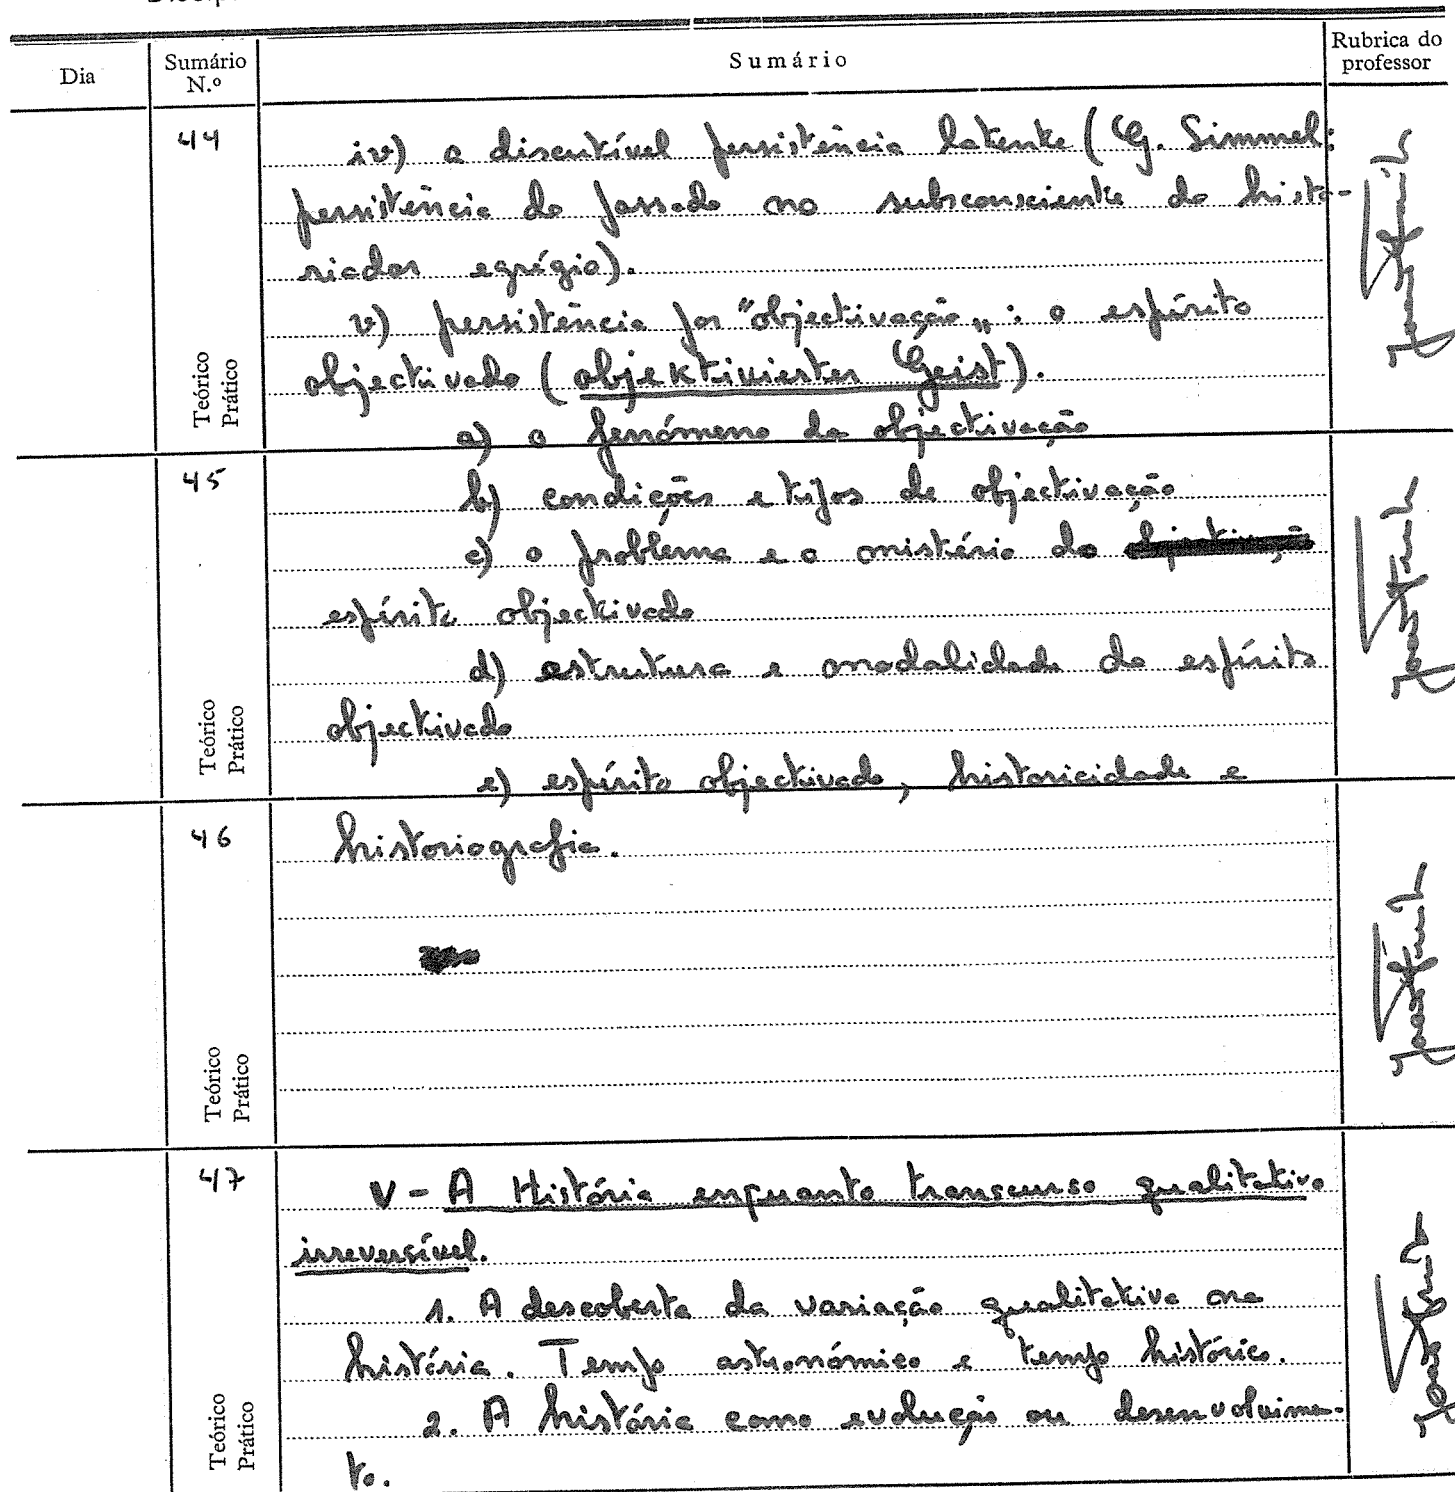 Dia
Sumário
N.º
Sumário
Rubrica do
professor
44
iv) a discutível persistência latente (G. Simmel:
persistência do passado no subsconsciente do histo-
riador egrégio).
v) persistência por "objectivação„: o espírito
objectivado (objektivierter Geist).
a) o fenómeno da objectivação
Teórico
Prático
45
b) condições e tipos de objectivação
c) o problema e o mistério do
espírito objectivado
d) estrutura e modalidade do espírito
objectivado
e) espírito objectivado, historicidade e
Teórico
Prático
46
historiografia.
Teórico
Prático
47
V - A História enquanto transcurso qualitativo
irreversível.
1. A descoberta da variação qualitativa na
história. Tempo astronómico e tempo histórico.
2. A história como evolução ou desenvolvime-
to.
Teórico
Prático